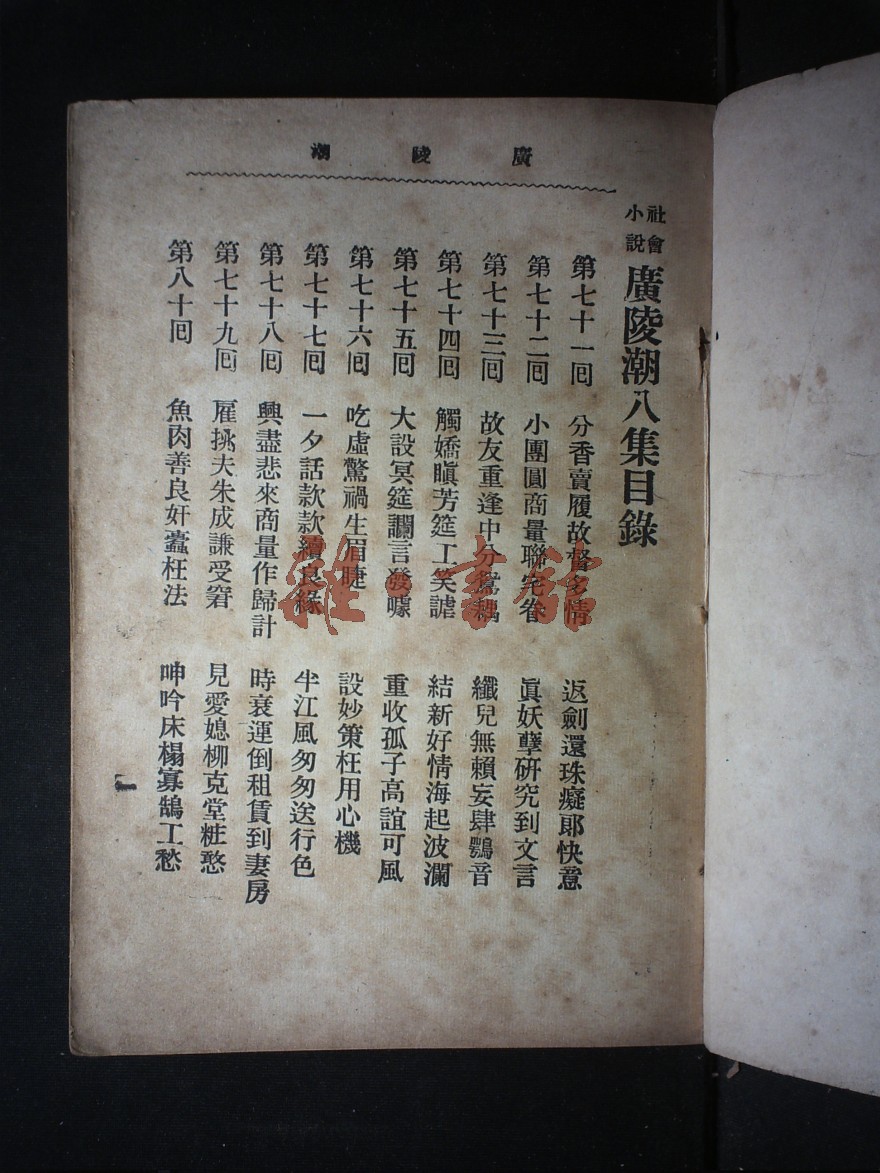 廣陵潮
社會小說 廣陵潮八集目錄
第七十一回 分香賣履故督多情 返劍還珠癡郞快意
第七十二回 小團圓商量聯宅眷 眞妖孽硏究到文言
第七十三回 故友重逢中分鴛耦 纖兒無賴妄肆鶚音
第七十四回 觸嬌瞋芳筵工笑謔 結新好情海起波瀾
第七十五回 大設冥筵讕言發噱 重收孤子高誼可風
第七十六回 吃虛驚禍生眉睫 設妙策枉用心機
第七十七回 一夕話款款續良緣 半江風匆匆送行色
第七十八回 興盡悲來商量作歸計 時衰運倒租賃到妻房
第七十九回 雇挑夫朱成謙受窘 見愛媳柳克堂粧憨
第八十回 魚肉善良奸蠹枉法 呻吟床榻寡鵠工愁
一
雜書館